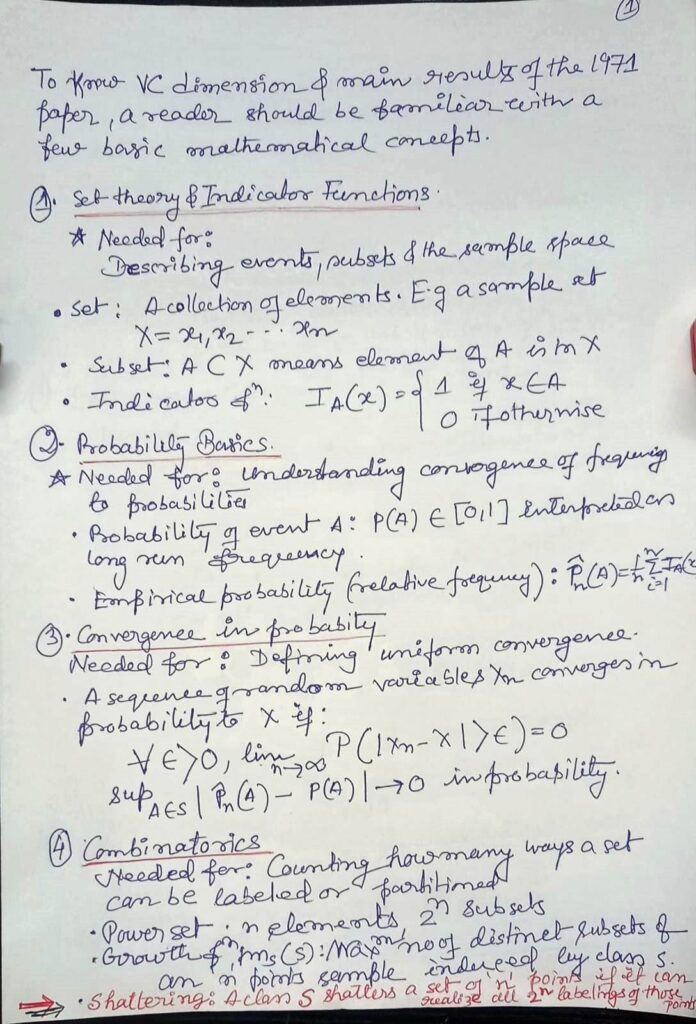 ①
To Know VC dimension & main results of the 1971
paper, a reader should be familiar with a
few basic mathematical concepts.
①. Set theory & Indicator Functions.
* Needed for:
Describing events, subsets & the sample space
• Set: A collection of elements. E.g a sample set
X = x1, x2 - - - xn
• Subset: A ⊂ X means element of A is in X
• Indicator fn: IA(x) = { 1 if x ∈ A
0 if otherwise
②. Probability Basics.
* Needed for: Understanding convergence of frequency
to probabilities
• Probability of event A: P(A) ∈ [0,1] interpreted as
long run frequency.
• Empirical probability (relative frequency): P̂n(A) = 1/n Σ i=1 n IA(x
③. Convergence in probabity
Needed for: Defining uniform convergence.
• A sequence of random variables Xn converges in
probability to X if:
∀ ϵ>0, lim n→∞ P(|Xn-X|>ϵ) = 0
sup A∈S |P̂n(A) - P(A)| → 0 in probability.
④ Combinatorics
Needed for: Counting how many ways a set
can be labeled or partitioned
• Power set. n elements, 2ⁿ subsets
• Growth fn ms(s): Maxm no of distinct subsets of
an n points sample induced by class S.
• Shattering: A class S shatters a set of 'n' points if it can
realize all 2ⁿ labelings of those points